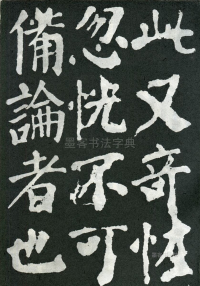 此又奇怪
忽恍不可
備論者也
墨客书法字典